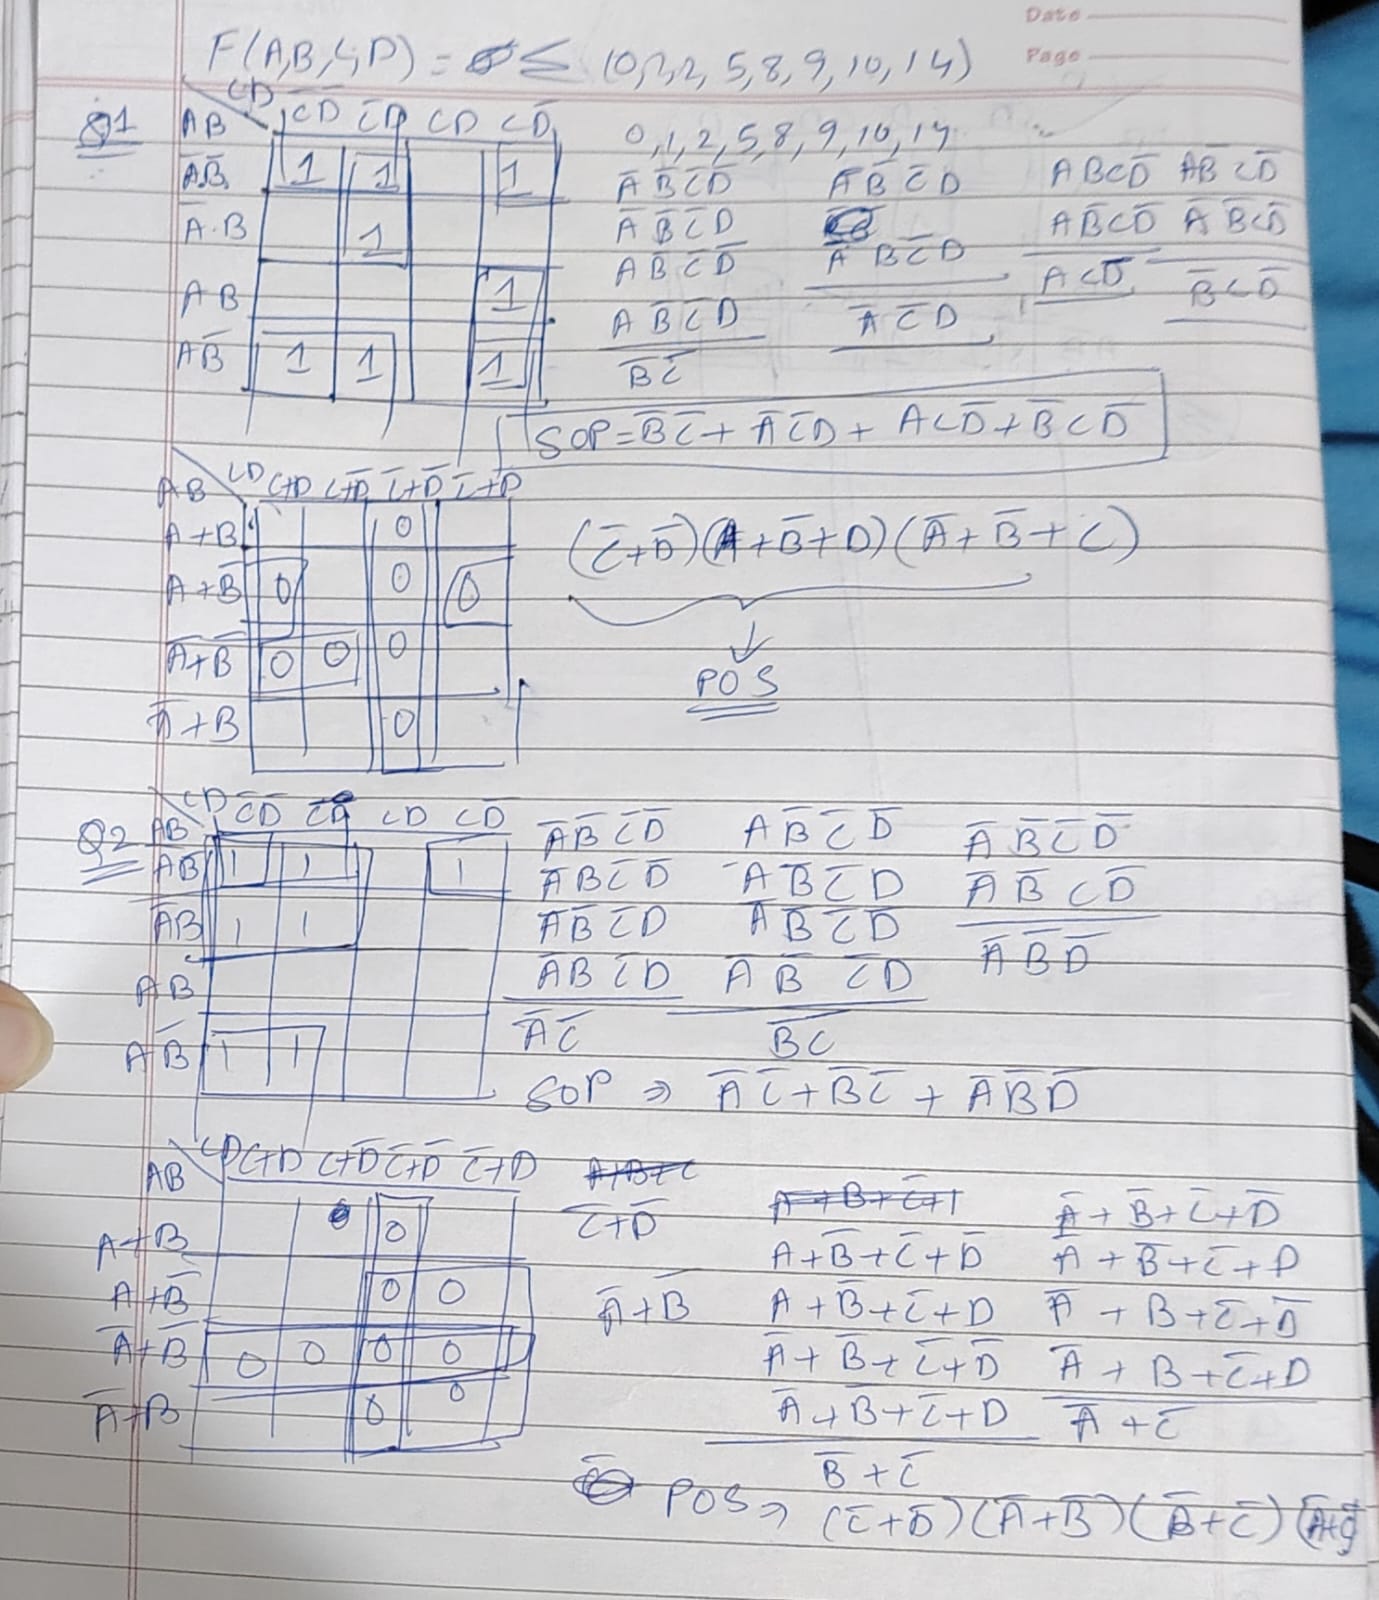 Date
Page
F(A,B,C,D) = Σ (0,1,2,5,8,9,10,14)
Q1
CD C̅D̅ C̅D CD CD̅
AB
A̅B̅ 1 1 1
A̅·B 1
AB 1
AB̅ 1 1 1
0,1,2,5,8,9,10,14
A̅B̅C̅D̅ A̅B̅C̅D ABCD̅ AB̅CD̅
A̅B̅C̅D AB̅CD̅ A̅B̅CD̅
AB̅C̅D̅ A̅BC̅D ACD̅ B̅CD̅
AB̅C̅D A̅C̅D
B̅C̅
SOP = B̅C̅ + A̅C̅D + ACD̅ + B̅CD̅
AB CD C+D C+D̅ C̅+D̅ C̅+D
A+B 0
A+B̅ 0 0 0
A̅+B̅ 0 0 0
A̅+B 0
(C̅+D̅)(A+B̅+D)(A̅+B̅+C)
POS
Q2
AB CD C̅D̅ C̅D CD CD̅
A̅B̅ 1 1 1
A̅B 1 1
AB
AB̅ 1 1
A̅B̅C̅D̅ AB̅C̅D̅ A̅B̅C̅D̅
A̅BC̅D̅ A̅B̅C̅D A̅B̅CD̅
A̅B̅C̅D A̅B̅C̅D A̅B̅D̅
A̅BC̅D AB̅C̅D
A̅C̅ B̅C̅
SOP ⇒ A̅C̅ + B̅C̅ + A̅B̅D̅
AB CD C+D C+D̅ C̅+D̅ C̅+D
A+B 0
A+B̅ 0 0
A̅+B̅ 0 0 0 0
A̅+B 0 0
C̅+D̅ A̅+B̅+C̅+D̅
A+B̅+C̅+D̅ A̅+B̅+C̅+D
A̅+B̅ A+B̅+C̅+D A̅+B+C̅+D̅
A̅+B̅+C̅+D̅ A̅+B+C̅+D
A̅+B̅+C̅+D A̅+C̅
B̅+C̅
POS ⇒ (C̅+D̅)(A̅+B̅)(B̅+C̅)(A̅+C̅)